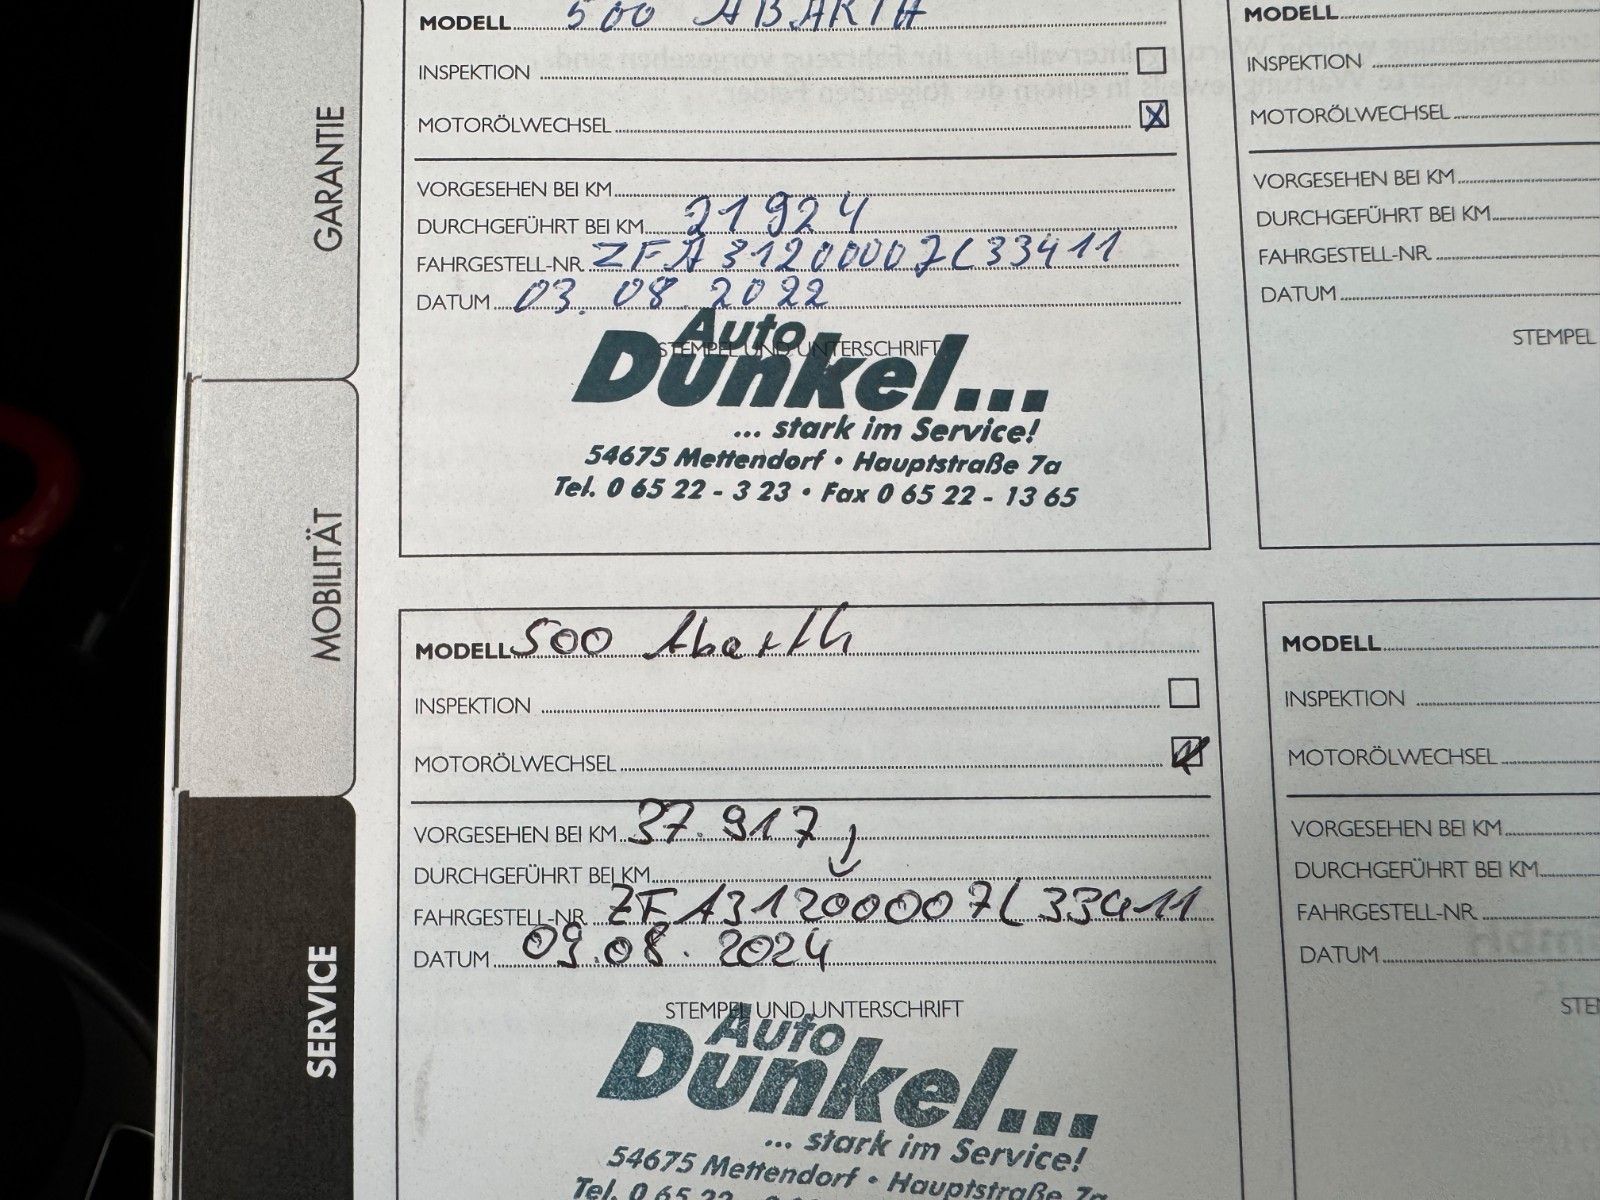 GARANTIE
MOBILITÄT
SERVICE
MODELL 500 ABARTH
INSPEKTION
MOTORÖLWECHSEL X
VORGESEHEN BEI KM
DURCHGEFÜHRT BEI KM 21924
FAHRGESTELL-NR. ZFA31200007L33411
DATUM 03.08.2022
STEMPEL UND UNTERSCHRIFT
Auto
Dunkel...
... stark im Service!
54675 Mettendorf • Hauptstraße 7a
Tel. 0 65 22 - 3 23 • Fax 0 65 22 - 13 65
MODELL 500 Abarth
INSPEKTION
MOTORÖLWECHSEL
VORGESEHEN BEI KM 37.917
DURCHGEFÜHRT BEI KM
FAHRGESTELL-NR. ZFA31200007L33411
DATUM 09.08.2024
STEMPEL UND UNTERSCHRIFT
Auto
Dunkel...
... stark im Service!
54675 Mettendorf • Hauptstraße 7a
Tel. 0 65 22
MODELL
INSPEKTION
MOTORÖLWECHSEL
VORGESEHEN BEI KM
DURCHGEFÜHRT BEI KM
FAHRGESTELL-NR.
DATUM
STEMPEL
MODELL
INSPEKTION
MOTORÖLWECHSEL
VORGESEHEN BEI KM
DURCHGEFÜHRT BEI KM
FAHRGESTELL-NR.
DATUM
STE